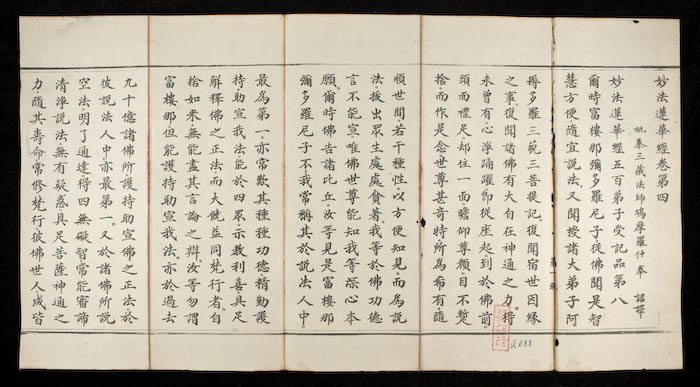 妙法蓮華經卷第四
姚秦三藏法師鳩摩羅什奉 詔譯
妙法蓮華經五百弟子受記品第八
爾時富樓那彌多羅尼子從佛聞是智
慧方便隨宜說法又聞授諸大弟子阿
耨多羅三藐三菩提記復聞宿世因緣
之事復聞諸佛有大自在神通之力得
未曾有心淨踊躍即從座起到於佛前
頭面禮足却住一面瞻仰尊顏目不蹔
捨而作是念世尊甚奇特所為希有隨
順世間若干種性以方便知見而為說
法拔出眾生處處貪著我等於佛功德
言不能宣唯佛世尊能知我等深心本
願爾時佛告諸比丘汝等見是富樓那
彌多羅尼子不我常稱其於說法人中
最為第一亦常歎其種種功德精勤護
持助宣我法能於四眾示教利喜具足
解釋佛之正法而大饒益同梵行者自
捨如來無能盡其言論之辯汝等勿謂
富樓那但能護持助宣我法亦於過去
九十億諸佛所護持助宣佛之正法於
彼說法人中亦最第一又於諸佛所說
空法明了通達得四無礙智常能審諦
清淨說法無有疑惑具足菩薩神通之
力隨其壽命常修梵行彼佛世人咸皆
Q688